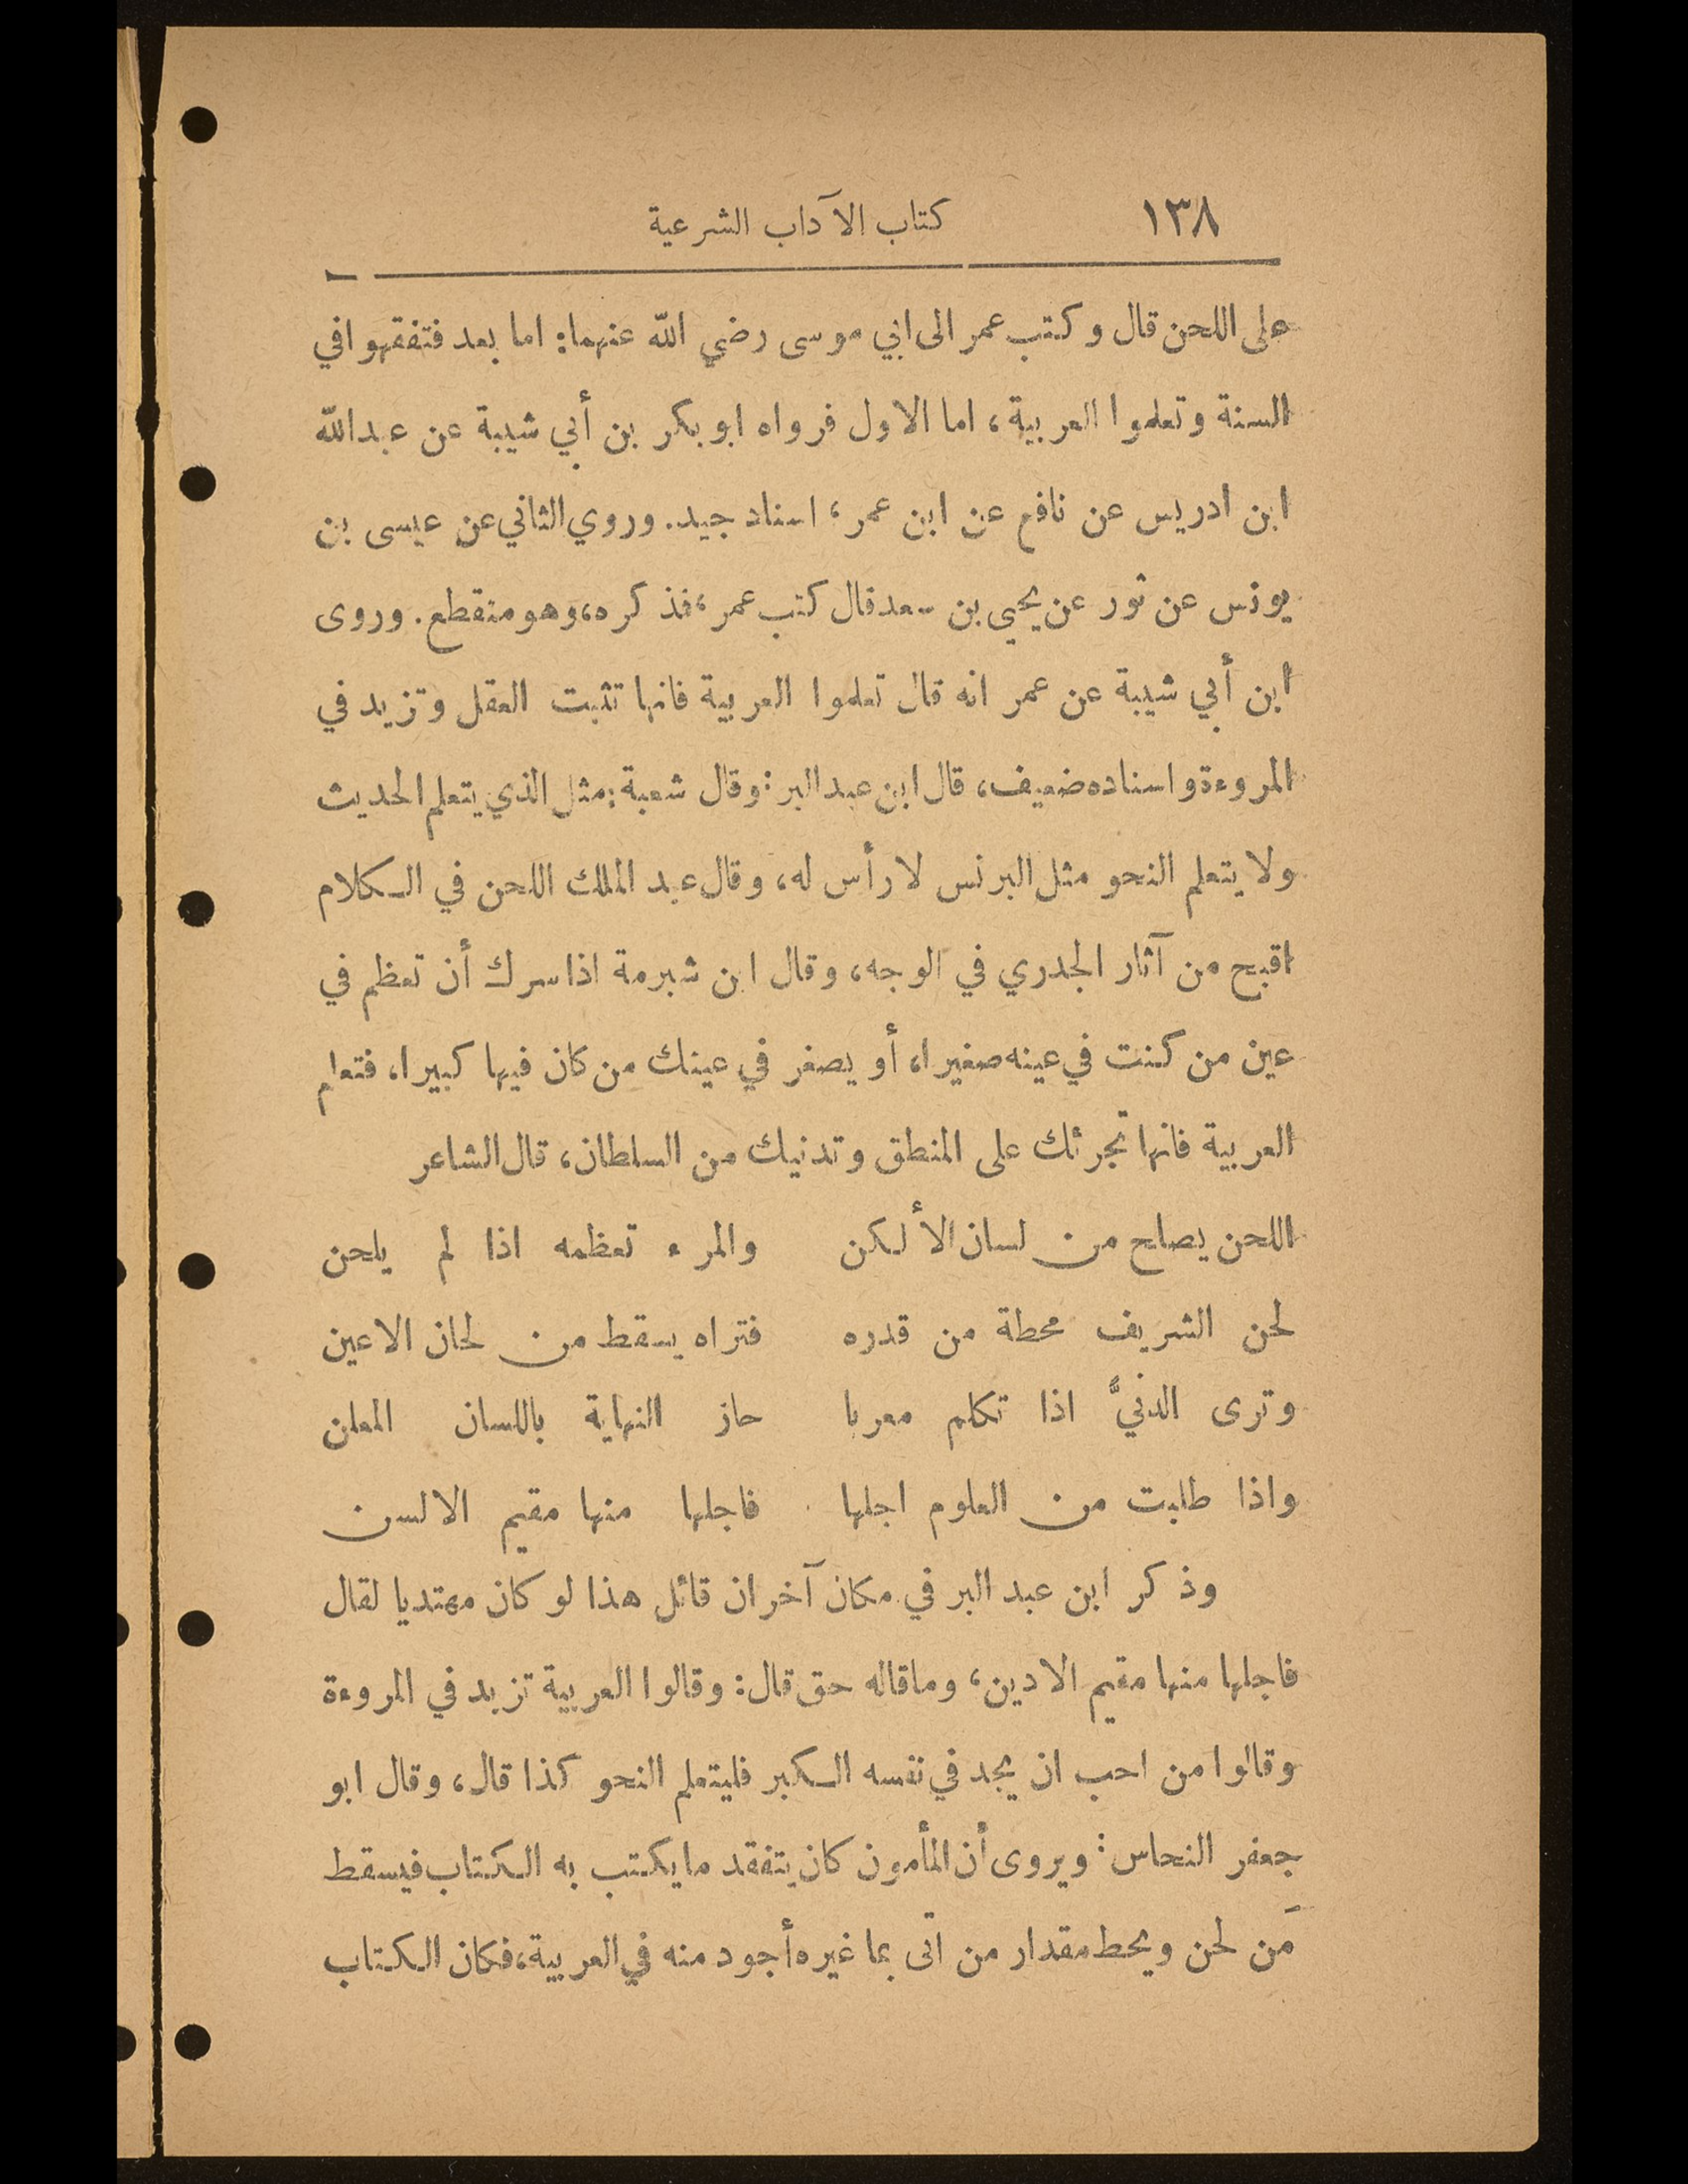 ١٣٨ كتاب الآداب الشرعية
على اللحن قال وكتب عمر الى ابي موسى رضي الله عنهما: اما بعد فتفقهوا في
السنة وتعلموا العربية، اما الاول فرواه ابو بكر بن أبي شيبة عن عبدالله
ابن ادريس عن نافع عن ابن عمر، اسناد جيد. وروي الثاني عن عيسى بن
يونس عن ثور عن يحيى بن سعد قال كتب عمر، فذكره، وهو منقطع. وروى
ابن أبي شيبة عن عمر انه قال تعلموا العربية فانها تثبت العقل وتزيد في
المروءة واسناده ضعيف، قال ابن عبد البر: وقال شعبة: مثل الذي يتعلم الحديث
ولا يتعلم النحو مثل البرنس لا رأس له، وقال عبد الملك اللحن في الكلام
اقبح من آثار الجدري في الوجه، وقال ابن شبرمة اذا سرك أن تعظم في
عين من كنت في عينه صغيرا، أو يصغر في عينك من كان فيها كبيرا، فتعلم
العربية فانها تجرئك على المنطق وتدنيك من السلطان، قال الشاعر
اللحن يصلح من لسان الألكن والمرء تعظمه اذا لم يلحن
لحن الشريف محطة من قدره فتراه يسقط من لحان الاعين
وترى الدنيَّ اذا تكلم معربا حاز النهاية باللسان المعلن
واذا طلبت من العلوم اجلها فاجلها منها مقيم الالسن
وذكر ابن عبد البر في مكان آخر ان قائل هذا لو كان مهتديا لقال
فاجلها منها مقيم الادين، وما قاله حق قال: وقالوا العربية تزيد في المروءة
وقالوا من احب ان يجد في نفسه الكبر فليتعلم النحو كذا قال، وقال ابو
جعفر النحاس: ويروى أن المأمون كان يتفقد ما يكتب به الكتاب فيسقط
مَن لحن ويحط مقدار من اتى بما غيره أجود منه في العربية، فكان الكتاب